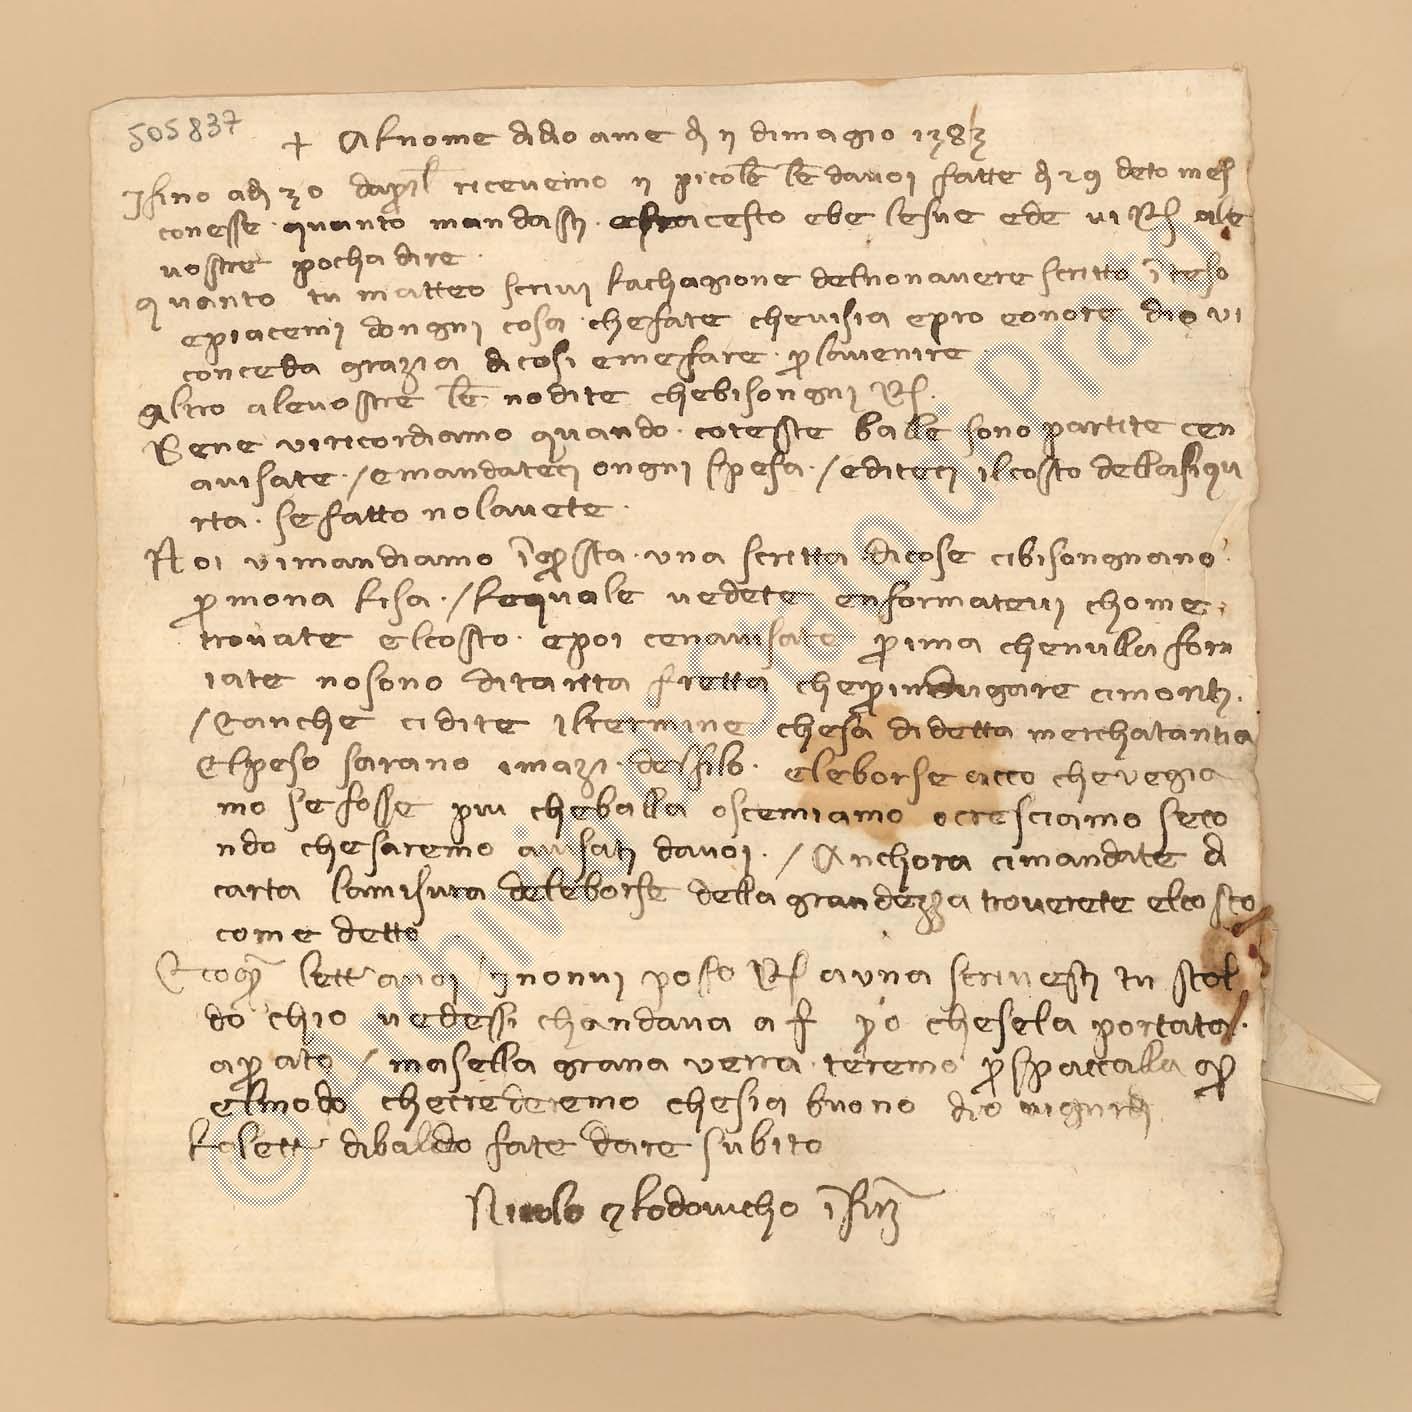 505837
+ Al nome di dio ame dì 2 di magio 1383
Ifino adì 30 dapril ricevemo 2 picole le davoi fatte dì 29 deto mes
conesse quanto mandasti cesto ebe lesue ede vi Rs ale
vostre pocha dire
quanto tu matteo scrivi lachagione delnonavere scritto ĩteso
epiacemi dongni cosa chefate chevisia epro eonore dio vi
conceda grazia dicosi emefare p lavenire
altro alevostre le nodite chebisongni Rs
Bene viricordiamo quando coteste balle sono partite cen
avisate / emandateci ongni spesa / editeci ilcosto dellasiqu
rta sefatto nolavete
Noi vimandiamo ĩ psta una scritta dicose cibisongnano
p mona lisa / lequale vedete enformatevi chome
trovate elcosto epoi cenavisate prima chenulla forn
iate nosono ditanta fretta chepindugare amonti
/ Eanche cidite iltermine chesa didetta merchatantia
Elpeso sarano imazi delfilo eleborse acco chevegia
mo sefosse piu cheballa oscemiamo ocresciamo seco
ndo chesaremo avisati davoi / Anchora cimandate di
carta lamisura deleborse della grandezza troverete elcosto
come detto
lett avoi / Inonvi poso Rs auna scrivesti tu stol
do chio vedessi chandava a f po chesela portata
aprato / masella grana verra teremo p spacialla qo
elmodo checrederemo chesia buono dio viguardi
Lalett dibaldo fate dare subito
Nicolo e lodovicho ĩ firz
© Archivio di Stato di Prato